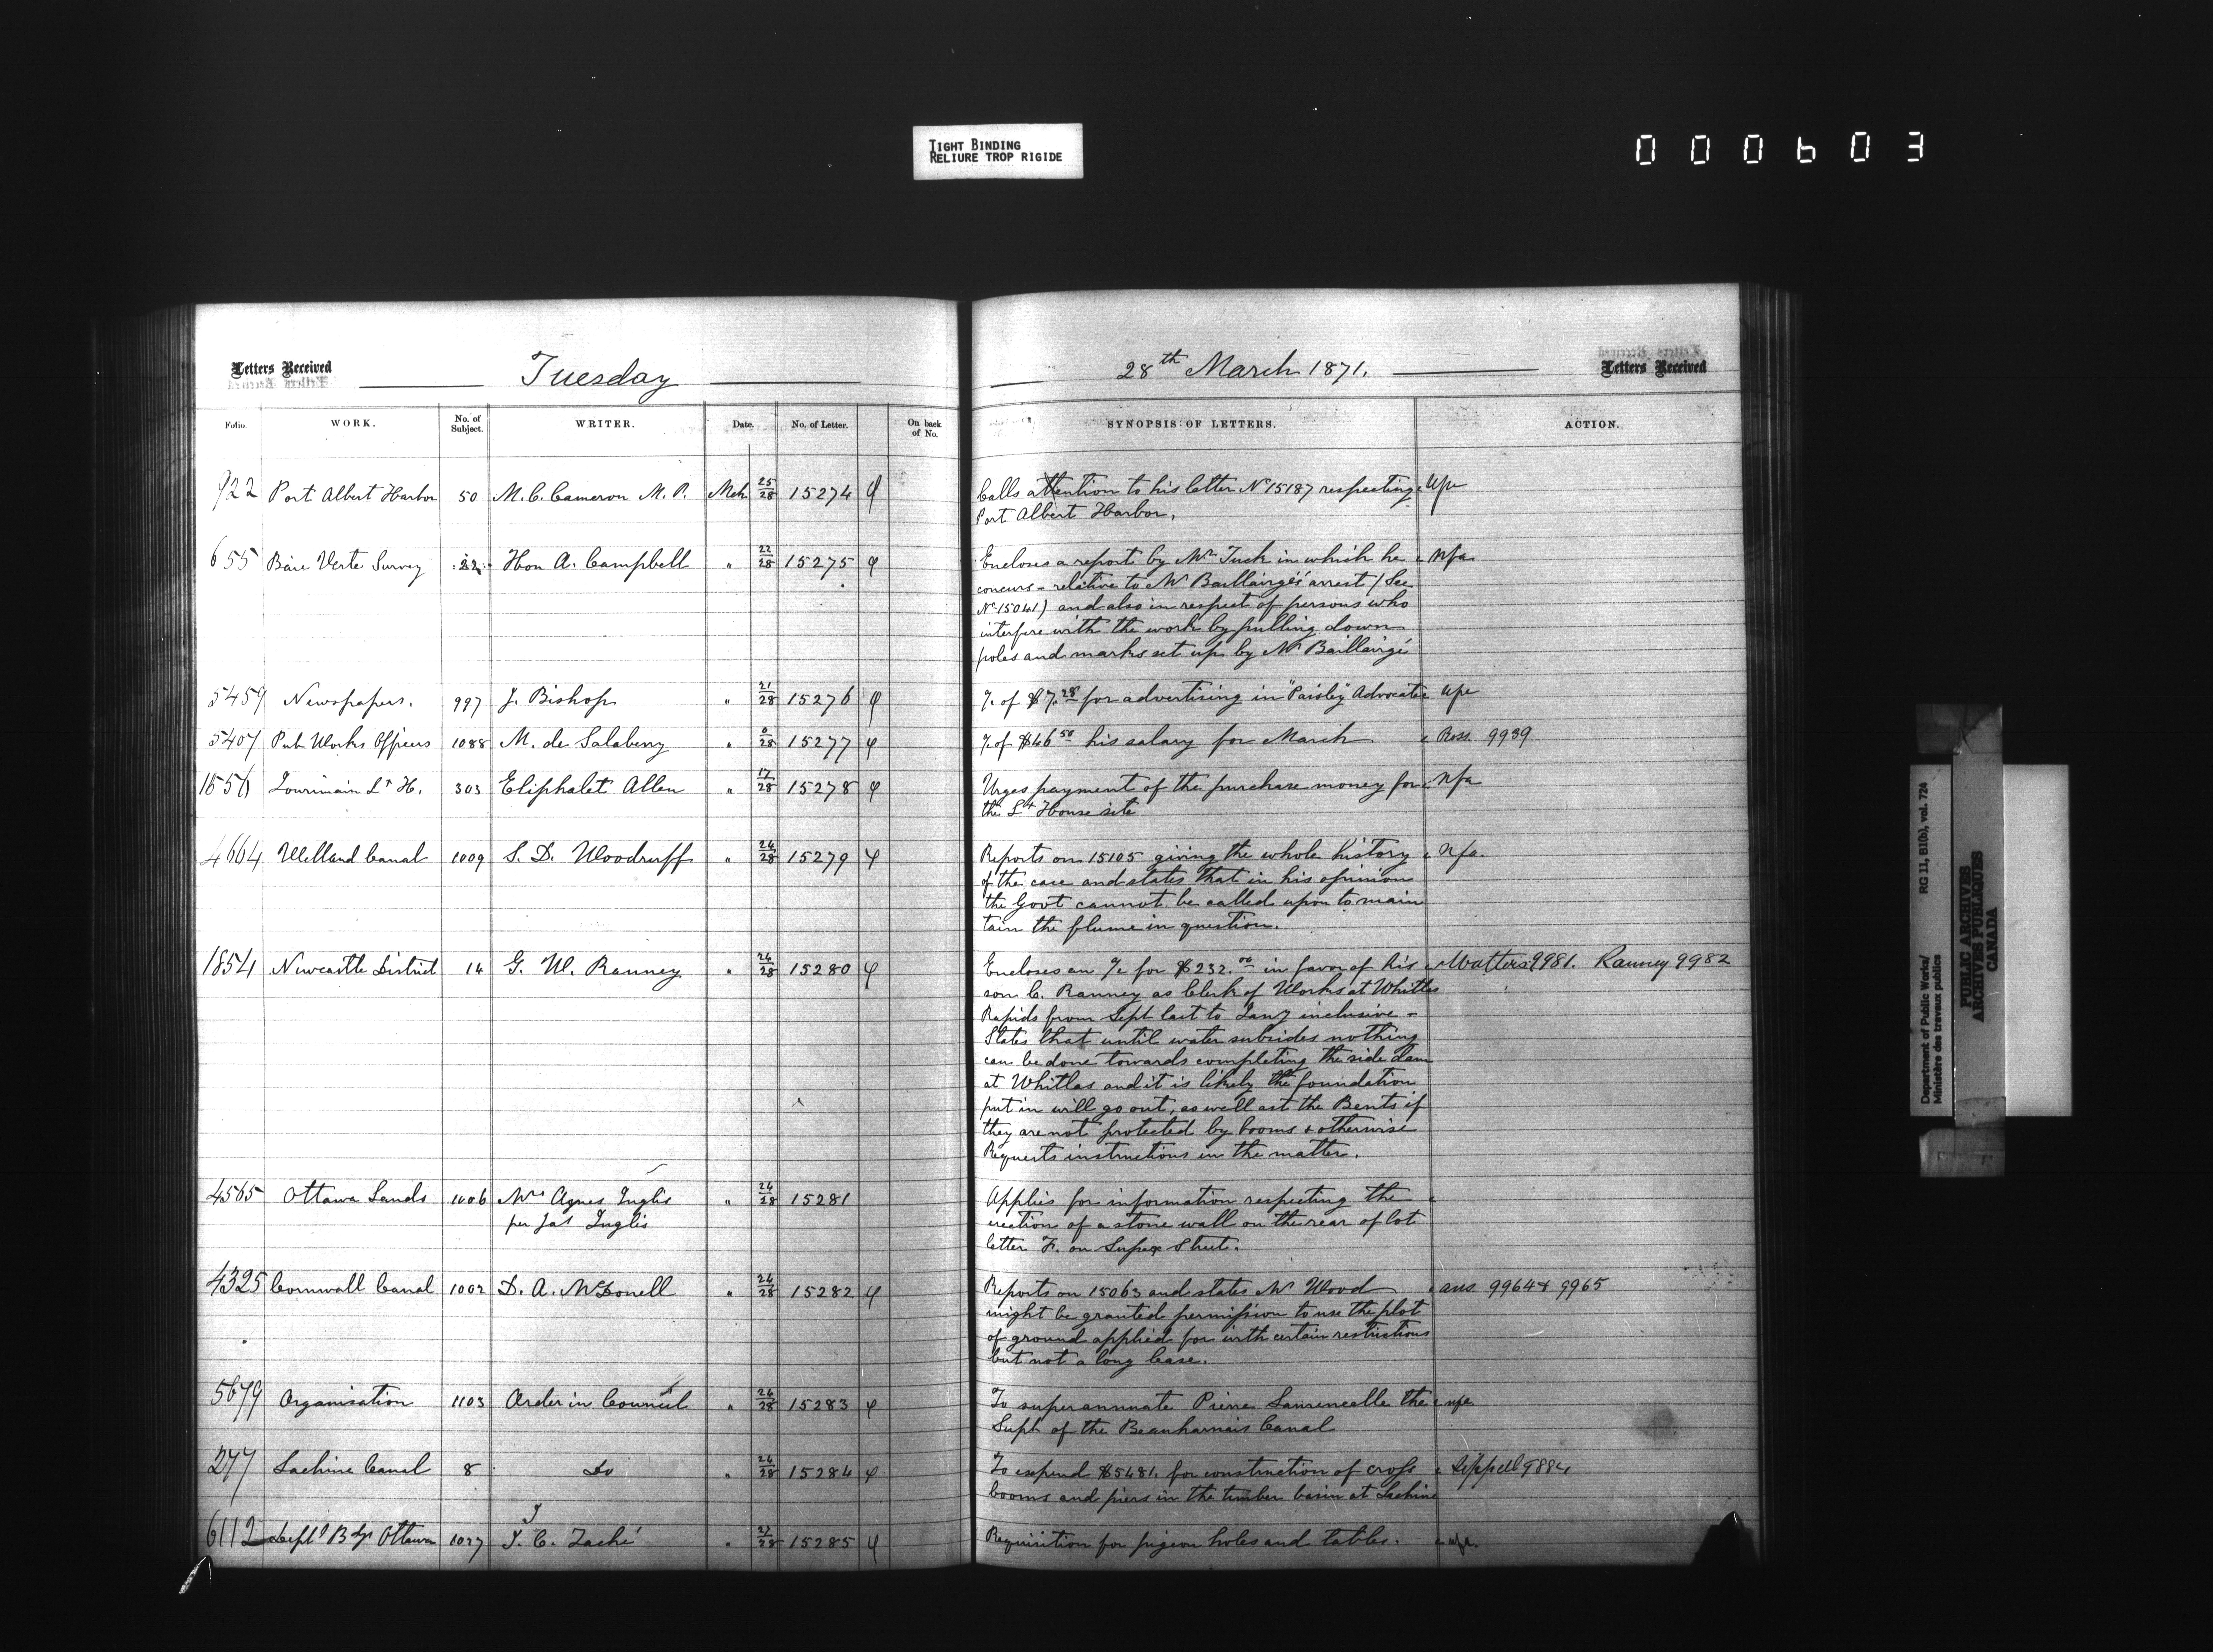 TIGHT BINDING
RELIURE TROP RIGIDE
000603
Letters Received
Tuesday
Folio. WORK. No. of Subject. WRITER. Date. No. of Letter. On back of No.
922 Port Albert Harbor 50 M. C. Cameron M. P. Mch 25/28 15274
655 Baie Verte Survey 22 Hon A. Campbell " 22/28 15275
5459 Newspapers. 997 J. Bishop " 21/28 15276
5407 Pub Works Officers 1088 M. de Salaberry " 0/28 15277
1556 Jourimain Lt H. 303 Eliphalet Allen " 17/28 15278
4664 Welland Canal 1009 S. D. Woodruff " 24/28 15279
1854 Newcastle District 14 G. W. Ranney " 24/28 15280
4565 Ottawa Lands 1006 Mrs Agnes Inglis " 24/28 15281
per Jas Inglis
4325 Cornwall Canal 1002 D. A. McDonell " 24/28 15282
5679 Organisation 1103 Order in Council " 24/28 15283
277 Lachine Canal 8 Do " 24/28 15284
6112 Deptl Bdgs Ottawa 1027 J. C. Taché " 27/28 15285
28th March 1871.
Letters Received
SYNOPSIS OF LETTERS. ACTION.
Calls attention to his letter No 15187 respecting
Port Albert Harbor.
Encloses a report by Mr Tuck in which he nfa
concurs - relative to Mr Baillairgé's arrest (See
No 15041) and also in respect of persons who
interfere with the work by pulling down
poles and marks set up by Mr Baillairgé
a/c of $7.28 for advertising in "Paisley" Advocate
a/c of $46.50 his salary for March Ross 9939
Urges payment of the purchase money for nfa
the Lt House site
Reports on 15105 giving the whole history nfa.
of the case and states that in his opinion
the Govt cannot be called upon to main
tain the flume in question.
Encloses an a/c for $232.00 in favor of his Watters 9981. Ranney 9982
son C. Ranney as Clerk of Works at Whitlas
Rapids from Sept last to Jany inclusive -
States that until water subsides nothing
can be done towards completing the side dam
at Whitlas and it is likely the foundation
put in will go out, as well ast the Bents if
they are not protected by booms & otherwise
Requests instructions in the matter.
Applies for information respecting the
erection of a stone wall on the rear of lot
letter F. on Street.
Reports on 15063 and states Mr Wood ans 9964 & 9965
might be granted permission to use the plot
of ground applied for with certain restrictions
but not a long lease.
To superannuate Pierre the
Supt of the Beauharnais Canal
To expend $5481. for construction of cross Sippell 9884
booms and piers in the timber basin at Lachine
Requisition for pigeon holes and tables. nfa.
Department of Public Works/ RG 11, B1(b), vol. 724
Ministère des travaux publics
PUBLIC ARCHIVES
ARCHIVES PUBLIQUES
CANADA